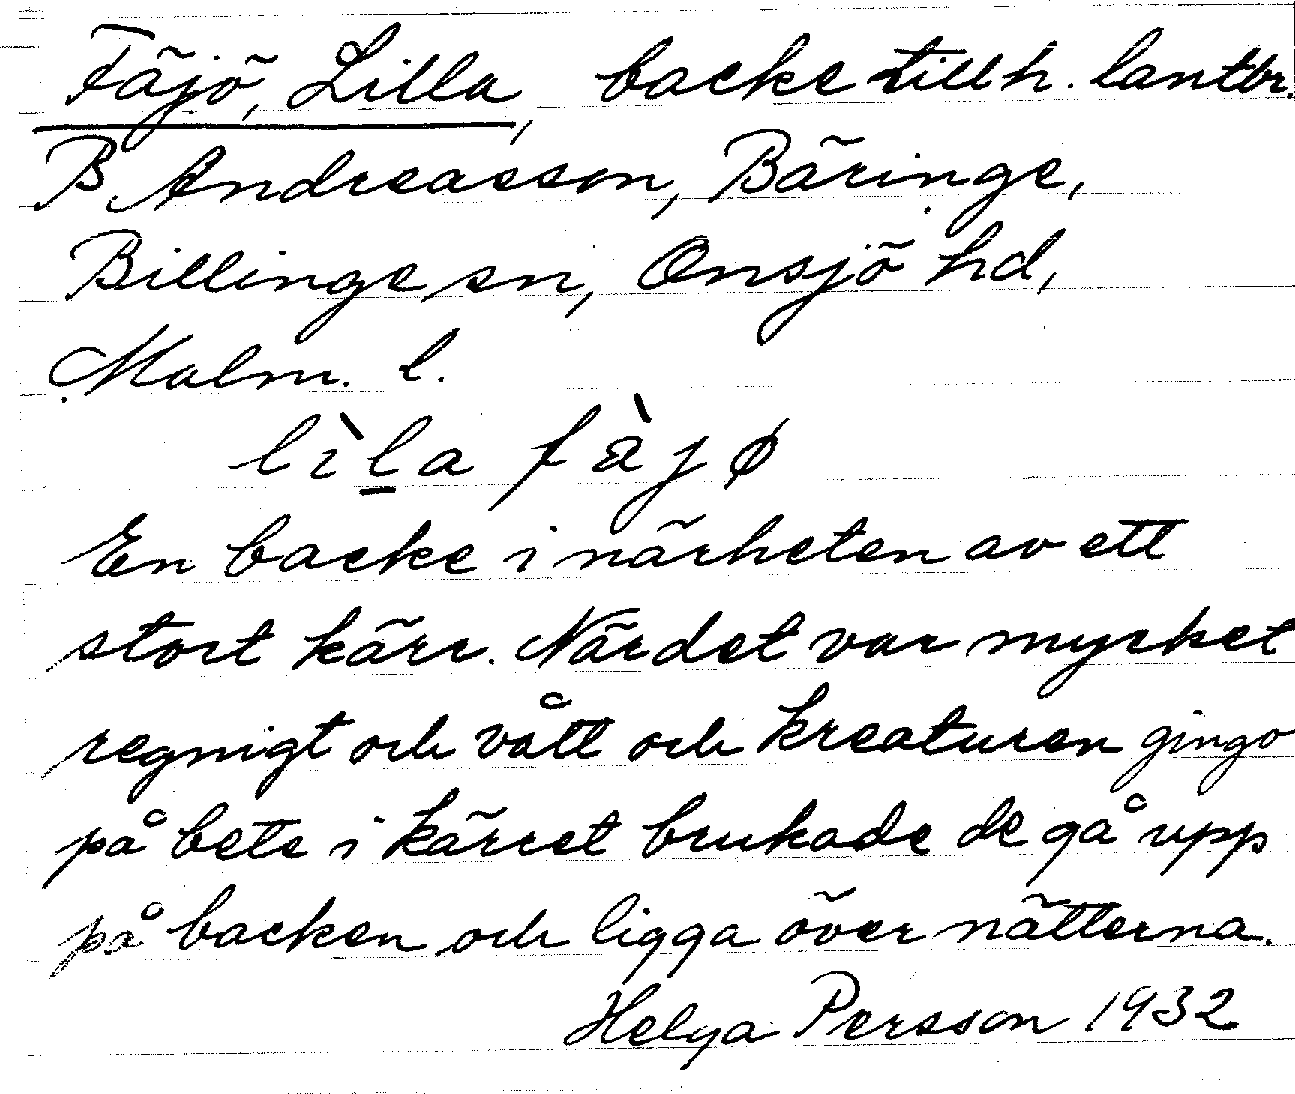 Fäjö, Lilla, backe tillh. lantbr.
B. Andreasson, Bäringe,
Billinge sn, Onsjö hd,
Malm. l.
lìla fàjø
En backe i närheten av ett
stort kärr. När det var mycket
regnigt och vått och kreaturen gingo
på bete i kärret brukade de gå upp
på backen och ligga över nätterna.
Helga Persson 1932